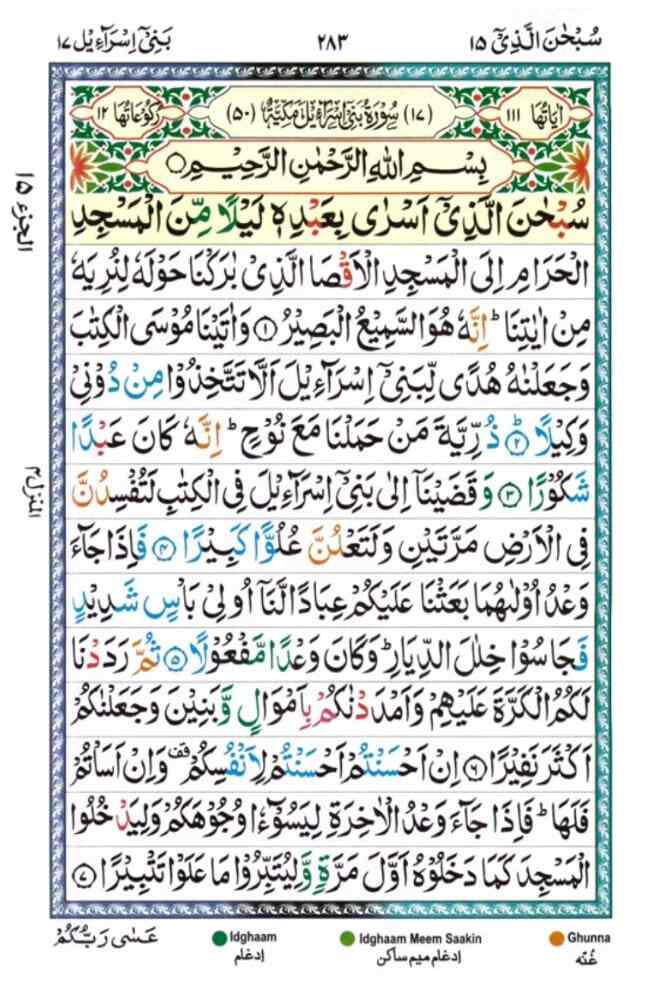 سُبْحٰنَ الَّذِیْۤ ۱۵
۲۸۳
بَنِیْۤ اِسْرَآءِیْل ۱۷
اٰیَاتُهَا ۱۱۱
(۱۷) سُوْرَةُ بَنِیْۤ اِسْرَآءِیْلَ مَكِّیَّةٌ (۵۰)
رُكُوْعَاتُهَا ۱۲
بِسْمِ اللّٰهِ الرَّحْمٰنِ الرَّحِیْمِ
سُبْحٰنَ الَّذِیْۤ اَسْرٰی بِعَبْدِهٖ لَیْلًا مِّنَ الْمَسْجِدِ
الْحَرَامِ اِلَی الْمَسْجِدِ الْاَقْصَا الَّذِیْ بٰرَكْنَا حَوْلَهٗ لِنُرِیَهٗ
مِنْ اٰیٰتِنَا ؕ اِنَّهٗ هُوَ السَّمِیْعُ الْبَصِیْرُ ۱ وَاٰتَیْنَا مُوْسَی الْكِتٰبَ
وَجَعَلْنٰهُ هُدًی لِّبَنِیْۤ اِسْرَآءِیْلَ اَلَّا تَتَّخِذُوْا مِنْ دُوْنِیْ
وَكِیْلًا ۲ ذُرِّیَّةَ مَنْ حَمَلْنَا مَعَ نُوْحٍ ؕ اِنَّهٗ كَانَ عَبْدًا
شَكُوْرًا ۳ وَقَضَیْنَاۤ اِلٰی بَنِیْۤ اِسْرَآءِیْلَ فِی الْكِتٰبِ لَتُفْسِدُنَّ
فِی الْاَرْضِ مَرَّتَیْنِ وَلَتَعْلُنَّ عُلُوًّا كَبِیْرًا ۴ فَاِذَا جَآءَ
وَعْدُ اُوْلٰىهُمَا بَعَثْنَا عَلَیْكُمْ عِبَادًا لَّنَاۤ اُولِیْ بَاْسٍ شَدِیْدٍ
فَجَاسُوْا خِلٰلَ الدِّیَارِ ؕ وَكَانَ وَعْدًا مَّفْعُوْلًا ۵ ثُمَّ رَدَدْنَا
لَكُمُ الْكَرَّةَ عَلَیْهِمْ وَاَمْدَدْنٰكُمْ بِاَمْوَالٍ وَّبَنِیْنَ وَجَعَلْنٰكُمْ
اَكْثَرَ نَفِیْرًا ۶ اِنْ اَحْسَنْتُمْ اَحْسَنْتُمْ لِاَنْفُسِكُمْ قف وَاِنْ اَسَاْتُمْ
فَلَهَا ؕ فَاِذَا جَآءَ وَعْدُ الْاٰخِرَةِ لِیَسُوْٓءٗا وُجُوْهَكُمْ وَلِیَدْخُلُوا
الْمَسْجِدَ كَمَا دَخَلُوْهُ اَوَّلَ مَرَّةٍ وَّلِیُتَبِّرُوْا مَا عَلَوْا تَتْبِیْرًا ۷
الجزء ۱۵
المنزل ۴
عَسٰی رَبُّكُمْ
Idghaam
ادغام
Idghaam Meem Saakin
ادغام میم ساکن
Ghunna
غُنّه